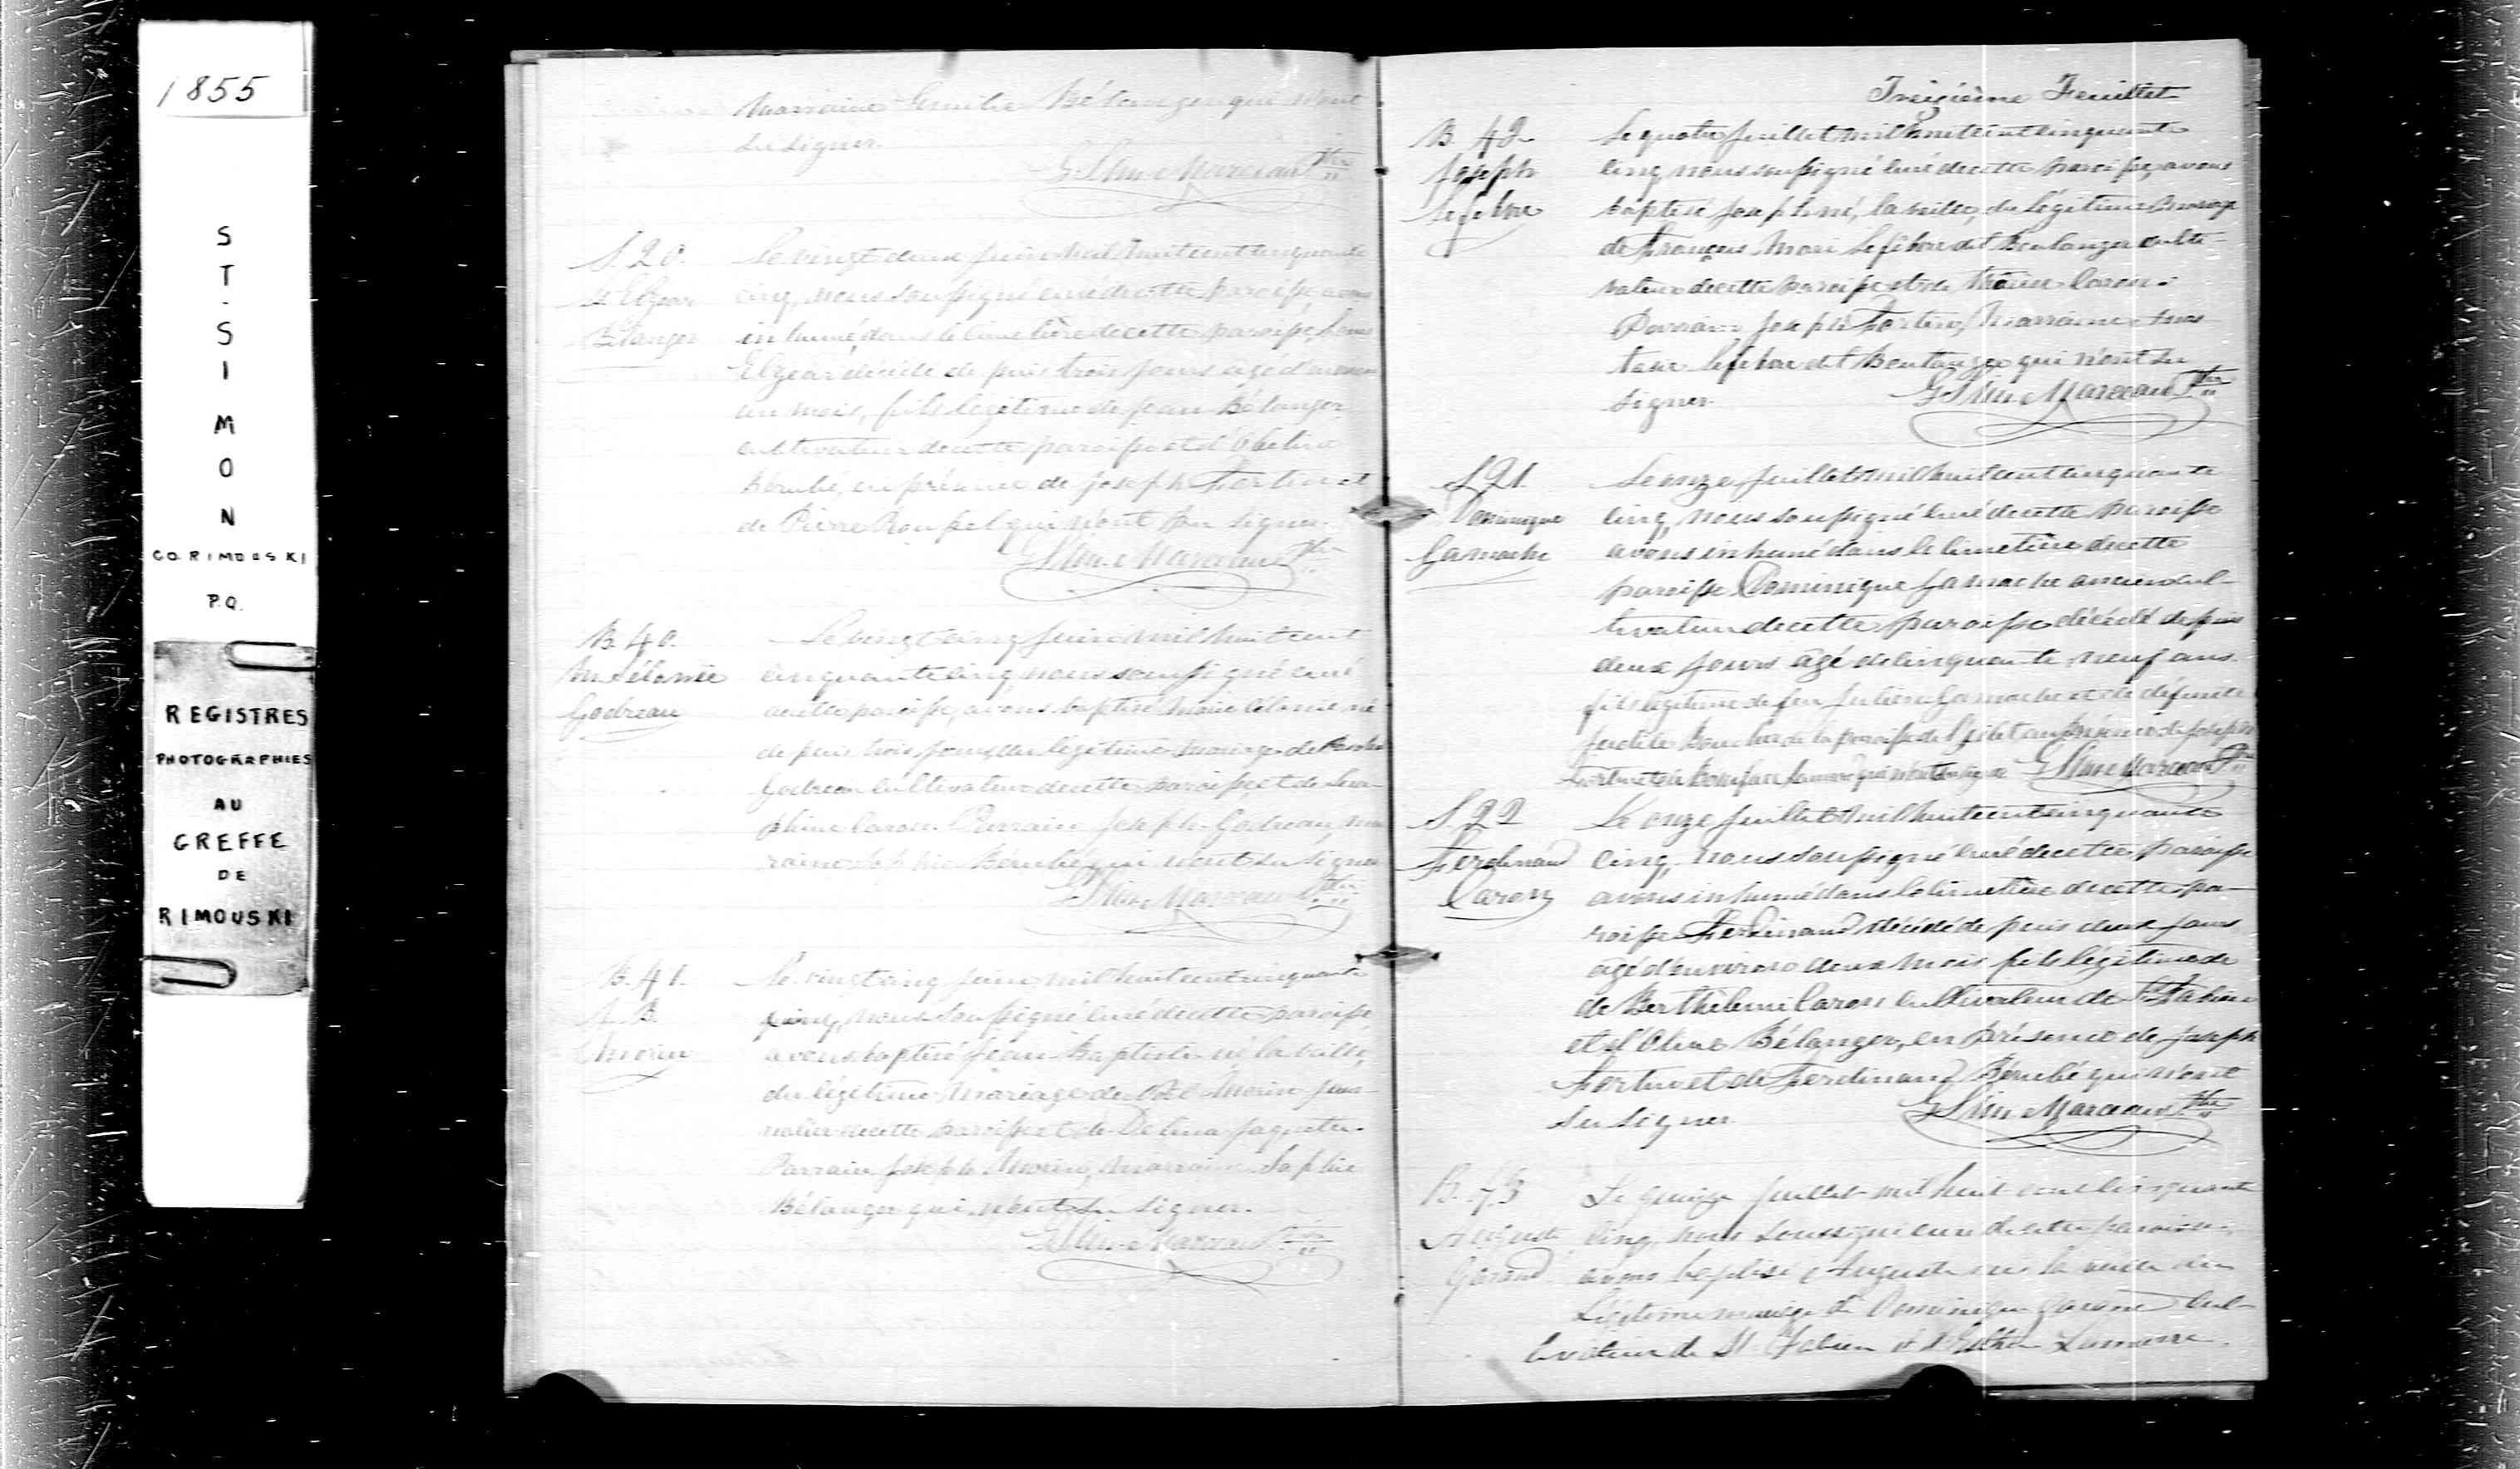 1855
ST-SIMON
CO. RIMOUSKI
P.Q.
REGISTRES
PHOTOGRAPHIES
AU
GREFFE
DE
RIMOUSKI
Marraine Emilie Bélanger qui n'ont
su signer.
Marceau Ptre
S. 20.
Elzear
Bélanger
Le vingt deux juin mil huit cent cinquante
cinq, nous soussigné curé de cette paroisse, avons
inhumé dans le cimetière de cette paroisse, Louis
Elzear décédé depuis trois jours âgé d'environ
un mois, fils légitime de Jean Bélanger
cultivateur de cette paroisse et d'
Bérubé, en présence de Joseph Fortin et
de Pierre Roussel qui n'ont pu signer.
Marceau Ptre
B. 40.
M. Mélanie
Godreau
Le vingt cinq juin mil huit cent
cinquante cinq nous soussigné curé
de cette paroisse, avons baptisé Marie Mélanie né
depuis trois jours, du légitime mariage de
Godreau cultivateur de cette paroisse et de Séra-
phine Caron. Parrain Joseph Godreau, mar
raine Sophie Bérubé qui n'ont su signer
Marceau Ptre
B. 41.
J. B.
Morin
Le vingt cinq juin mil huit cent cinquante
cinq, nous soussigné curé de cette paroisse
avons baptisé Jean Baptiste né la veille,
du légitime mariage de Morin jour-
nalier de cette paroisse et de Delina
Parrain Joseph Morin, Marraine Sophie
Bélanger qui n'ont su signer.
Marceau Ptre
Treizième Feuillet
B. 42
Joseph
Lefebvre
Le quatre juillet mil huit cent cinquante
cinq, nous soussigné curé de cette paroisse, avons
baptisé Joseph né, la veille, du légitime mariage
de François Marie Lefebvre dit Boulanger culti-
vateur de cette paroisse et de Marie Caron.
Parrain Joseph Fortin, Marraine Anas-
tasie Lefebvre dit Boulanger qui n'ont su
signer. Marceau Ptre
S. 21.
Dominique
Gamache
Le onze juillet mil huit cent cinquante
cinq, nous soussigné curé de cette paroisse
avons inhumé dans le cimetière de cette
paroisse Dominique Gamache ancien cul-
tivateur de cette paroisse décédé depuis
deux jours âgé de cinquante neuf ans
fils légitime de feu Julien Gamache et de défunte
Boucher de la paroisse de l'Islet en présence de Joseph
Fortin et de Boniface qui n'ont su signer Marceau Ptre
S. 22
Ferdinand
Caron
Le onze juillet mil huit cent cinquante
cinq, nous soussigné curé de cette paroisse
avons inhumé dans le cimetière de cette pa-
roisse Ferdinand décédé depuis deux jours
âgé d'environ deux mois fils légitime de
de Berthélemi Caron cultivateur de St Fabien
et d'Olive Bélanger, en présence de Joseph
Fortin et de Ferdinand Bérubé qui n'ont
su signer Marceau Ptre
B. 43
Auguste
Garand
Le quinze juillet mil huit cent cinquante
cinq, nous soussigné curé de cette paroisse,
avons baptisé Auguste né la veille du
légitime mariage de Dominique Garand cul-
tivateur de St Fabien et d'Esther Lamarre